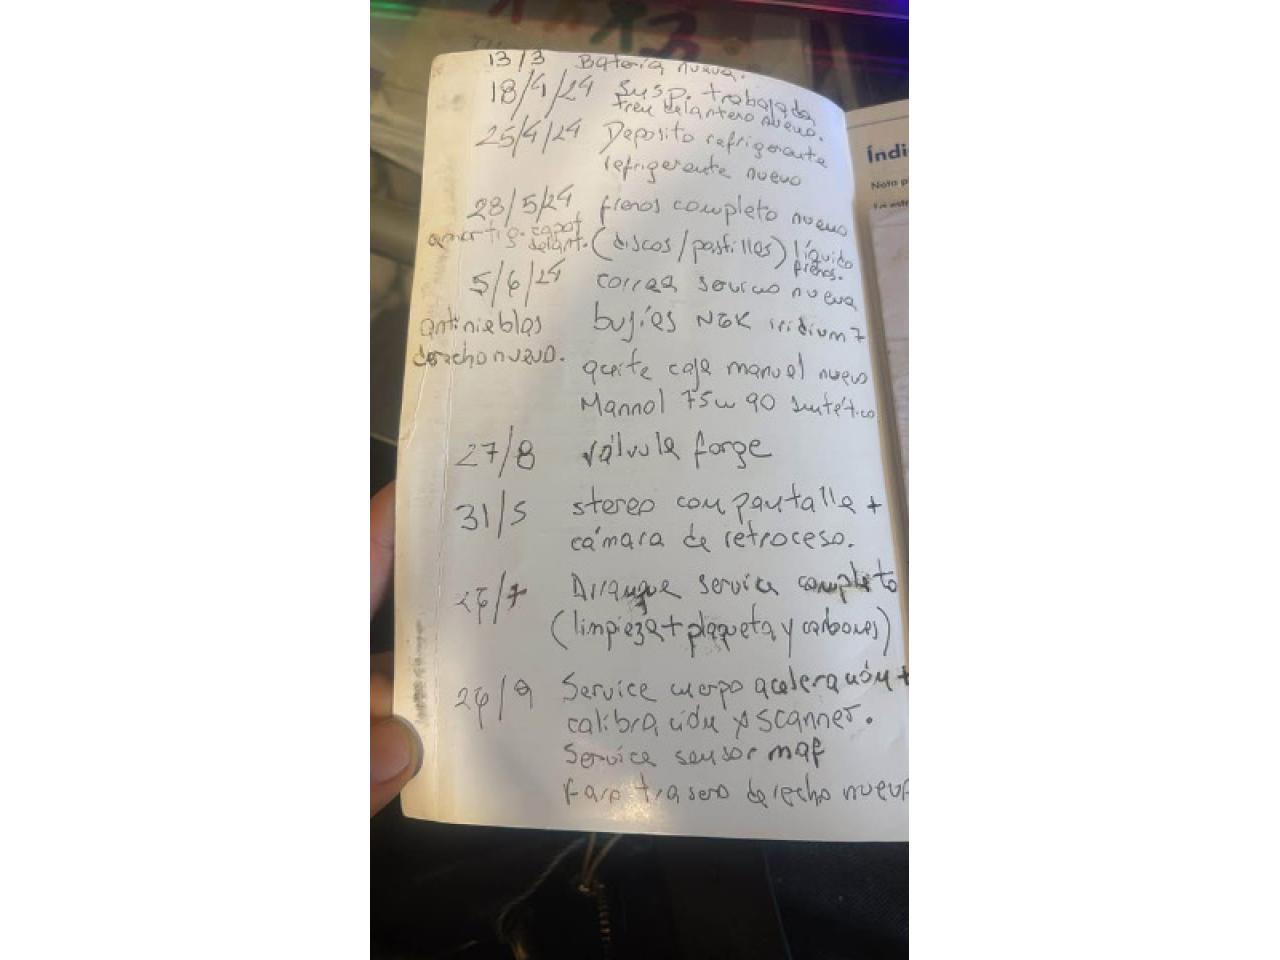 13/3 Batería nueva.
18/4/24 Susp. trabajada
tren delantero nuevo.
25/4/24 Deposito refrigerante
refrigerante nuevo
28/5/24 frenos completo nuevo
amortig. capot
delant. (discos/pastillas) líquido
frenos.
5/6/24 correa servicio nueva
antinieblas bujías NGK iridium 7
derecho nuevo.
aceite caja manual nuevo
Mannol 75w 90 sintético
27/8 válvula forge
31/5 stereo com pantalla +
cámara de retroceso.
26/7 Arranque service completo
(limpieza + plaqueta y carbones)
26/9 Service cuerpo aceleración +
calibración x scanner.
Service sensor maf
Faro trasero derecho nuevo
Índi
Nota p